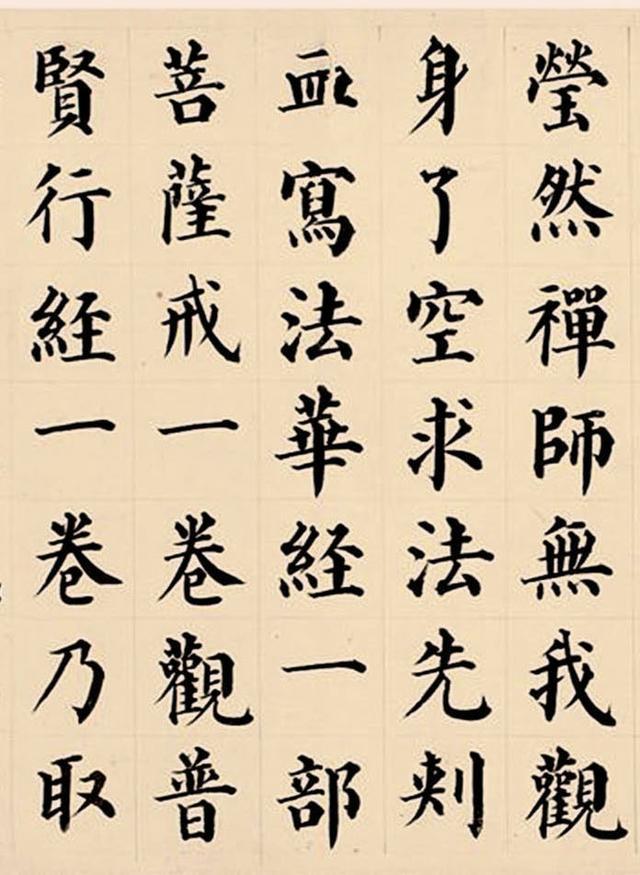 瑩然禪師無我觀
身了空求法先刺
血寫法華經一部
菩薩戒一卷觀普
賢行經一卷乃取